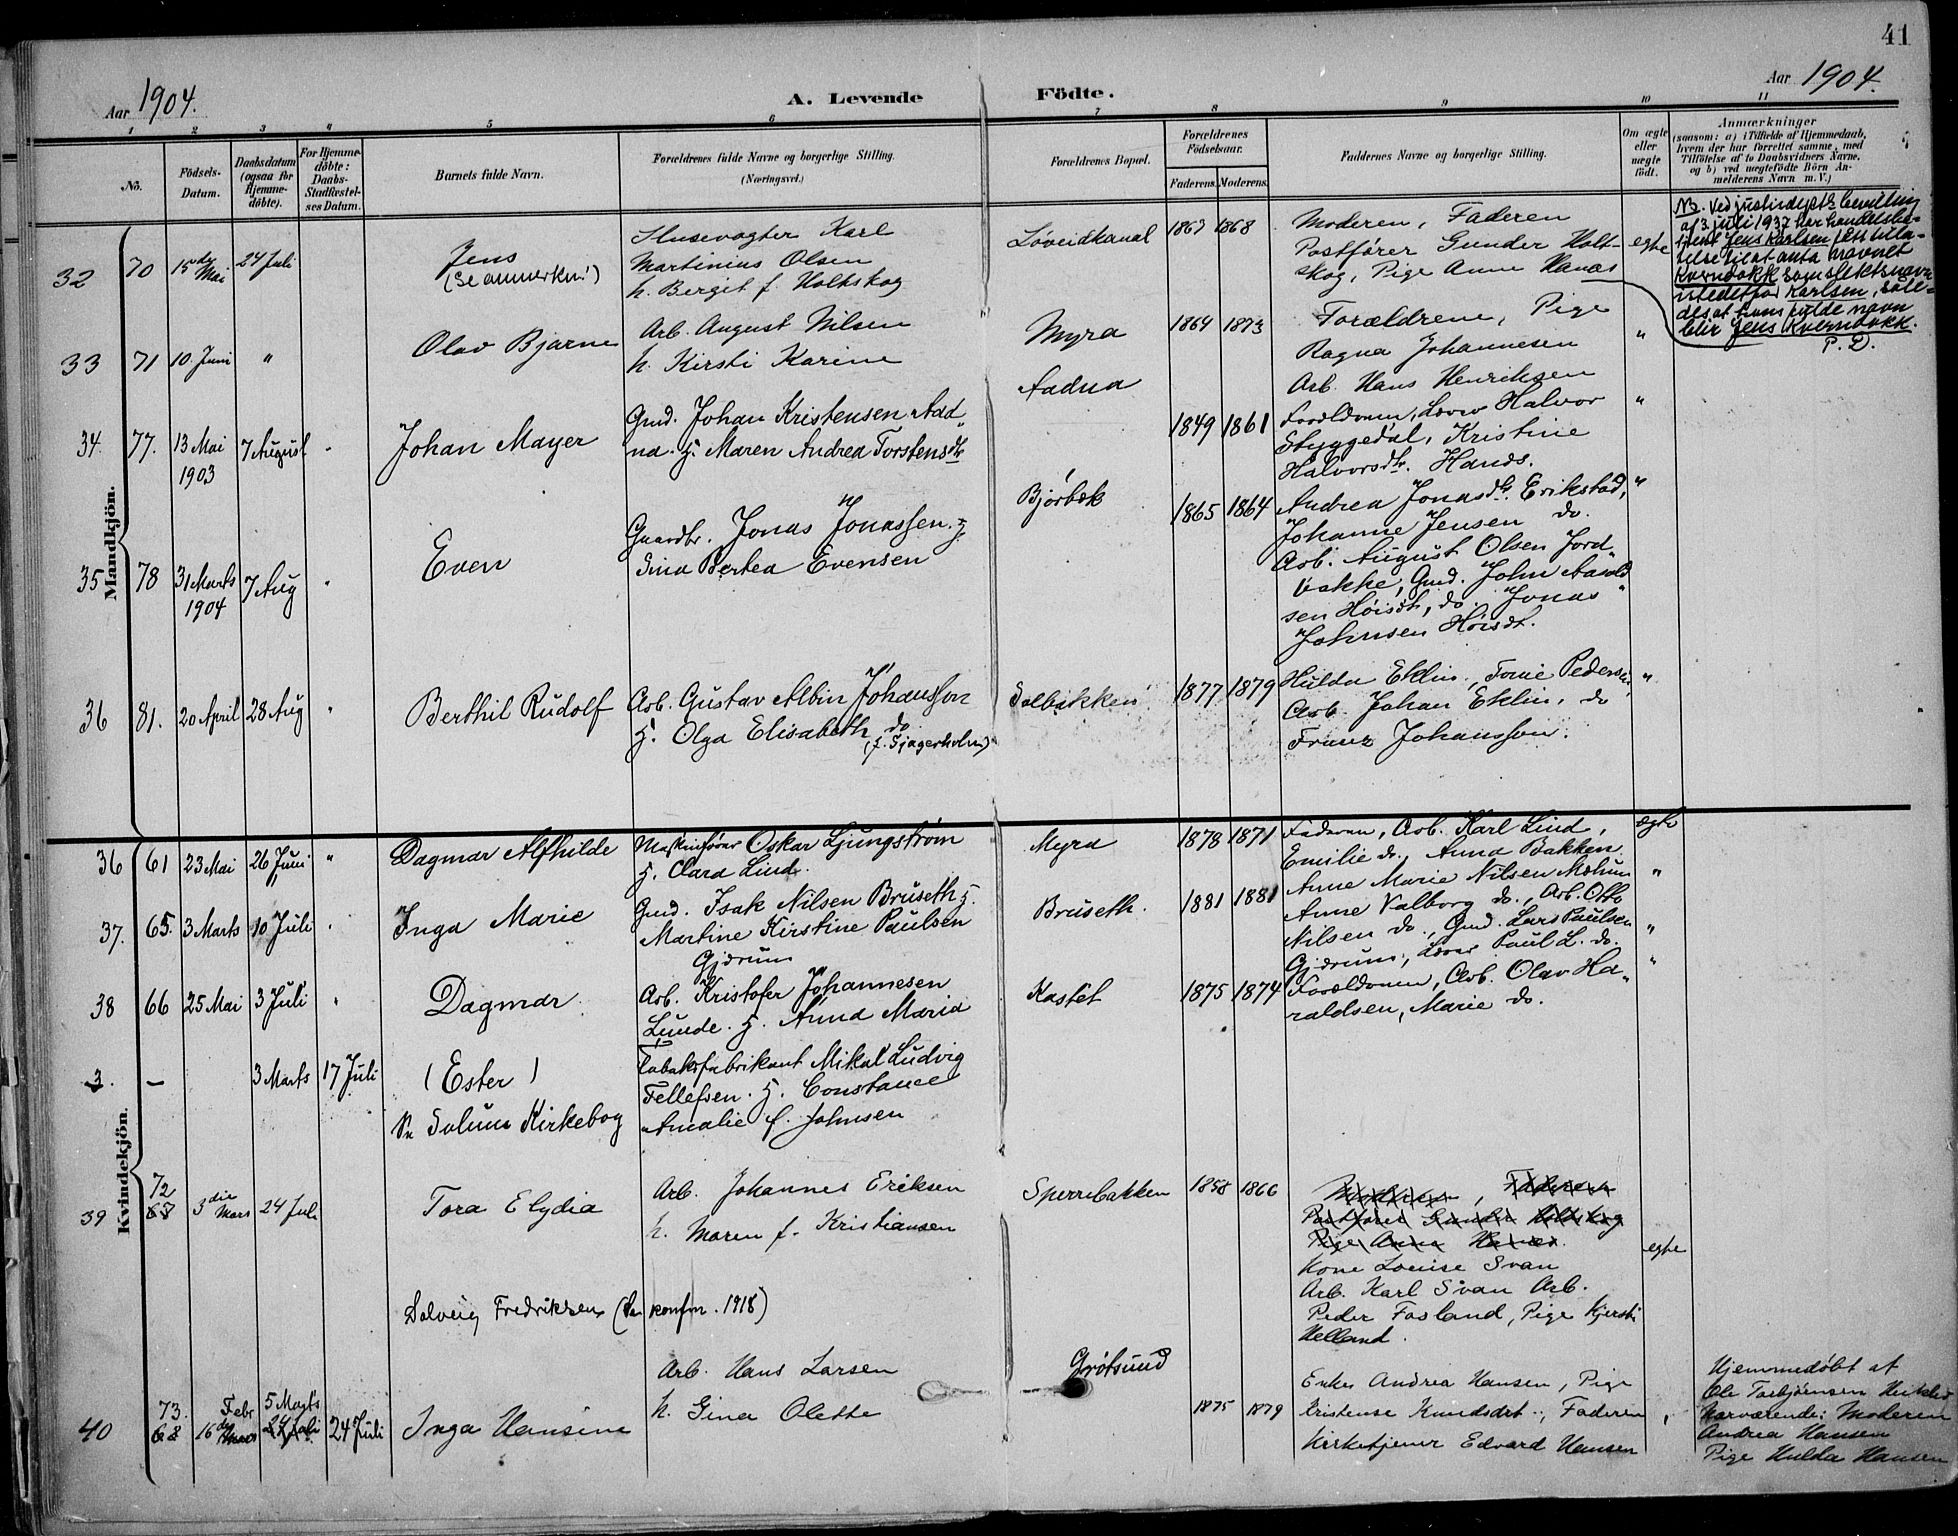 41
Aar 1904.
A. Levende Födte.
Aar 1904.
1 2 3 4 5 6 7 8 9 10 11
No.
Födsels-Datum.
Daabsdatum (ogsaa for Hjemme-döbte).
For Hjemme-döbte: Daabs-Stadfæstel-ses Datum.
Barnets fulde Navn.
Forældrenes fulde Navne og borgerlige Stilling.
(Næringsvei.)
Forældrenes Bopæl.
Forældrenes Födselsaar.
Faderens. Moderens.
Faddernes Navne og borgerlige Stilling.
Om ægte eller uægte födt.
Anmærkninger
(saasom: a) i Tilfælde af Hjemmedaab,
hvem der har forrettet samme, med
Tilföielse af to Daabsvidners Navne,
og b) ved uægtefödte Börn An-
melderens Navn m. V.)
Mandkjön.
32 70 15de Mai 24 Juli
Jens
(Se anmerkn!)
Slusevogter Karl
Martinius Olsen
h. Berget f. Holtskog
Løveidkanal
1867 1868
Moderen, Faderen
Postfører Gunder Holt-
skog, Pige Anne Hanæs
egte
NB. Ved justisdepts bevilling
af 3 juli 1937 har handelsbe-
tjent Jens Karlsen fått tilla-
telse til at anta navnet
Kverndokk som slektsnavn
istedetfor Karlsen, såle-
des at hans fulde navn
blir Jens Kverndokk.
P. D.
33 71 10. Juni "
Olav Bjarne
Arb. August Nilsen
h. Kirsti Karine
Myra
1864 1873
Forældrene, Pige
Ragna Johannesen
Arb. Hans Henriksen
"
34. 77. 13 Mai 1903 7 August "
Johan Mayer
Gmd. Johan Kristensen Aad-
na. H. Maren Andrea Torstensdtr
Aadna
1849 1861
Forældrene, Lærer Halvor
Styggedal, Kristine
Halvorsdtr. Hands.
"
35 78 31 Marts 1904 7 Aug "
Even
Gaardbr. Jonas Jonassen. H.
Gina Bertea Evensen
Bjørbæk
1865 1864
Andrea Jonasdtr. Erikstad,
Johanne Jensen do.
Arb. August Olsen Jord-
bakke, Gmd. John Aasold
sen Høisdt, do. Jonas
Johnsen Høisdt.
"
36 81. 20 April 28 Aug "
Berthil Rudolf
Arb. Gustav Albin Johansson
H. Olga Elisabeth do
(f. Sjagerholm)
Solbakken
1877 1879
Hulda Eklin, Tomie Pedersen,
Arb. Johan Eklin, do
Franz Johansson.
"
Kvindekjön.
36 61 23 Mai 26 Juni "
Dagmar Alfhilde
Maskinfører Oskar Ljungstrøm
H. Clara Lind.
Myra
1878 1871
Faderen, Arb. Karl Lind,
Emilie do., Anna Bakken
ægte
37. 65. 3 Marts 10 Juli "
Inga Marie
Gmd. Isak Nilsen Bruseth H.
Martine Kirstine Paulsen
Gjærum
Bruseth.
1881 1881
Anne Marie Nilsen Mælum
Anne Valborg do., Arb. Otto
Nilsen do., Gmd. Lars Paulsen
Gjærum, Lærer Paul L. do.
"
38 66 25 Mai 3 Juli "
Dagmar
Arb. Kristofer Johannesen
Lunde. H. Anna Maria
Kastet
1875 1874
Forældrene, Arb. Olav Ha-
raldsen, Marie do.
"
3. — 3 Marts 17 Juli
(Ester)
Se Solum Kirkebog
Tobaksfabrikant Mikal Ludvig
Tellefsen. H. Constance
Amalie f. Johnsen
39 72 67 3die Mars 24 Juli
Tora Elydia
Arb. Johannes Eriksen
h. Maren f. Kristiansen
Sperrebakken
1858 1866
Moderen, Faderen
Postfører Gunder Holtskog
Pige Anne Hanæs.
Kone Louise Svan
Arb. Karl Svan Arb.
Peder Fosland, Pige Kjersti
Helland.
egte
Solveig Fredriksen (Se konfrm. 1918)
40 73. 68 Febr 16de Mars 5 Marts 24 Juli 24 Juli
Inga Hansine
Arb. Hans Larsen
h. Gina Olette
Grøtsund
1875 1879
Enke Andrea Hansen, Pige
Kristense Knudsdtr., Faderen
Kirketjener Edvard Hansen
"
Hjemmedøbt af
Ole Torbjørnsen
Nærværende: Moderen
Andrea Hansen
Pige Hulda Hansen